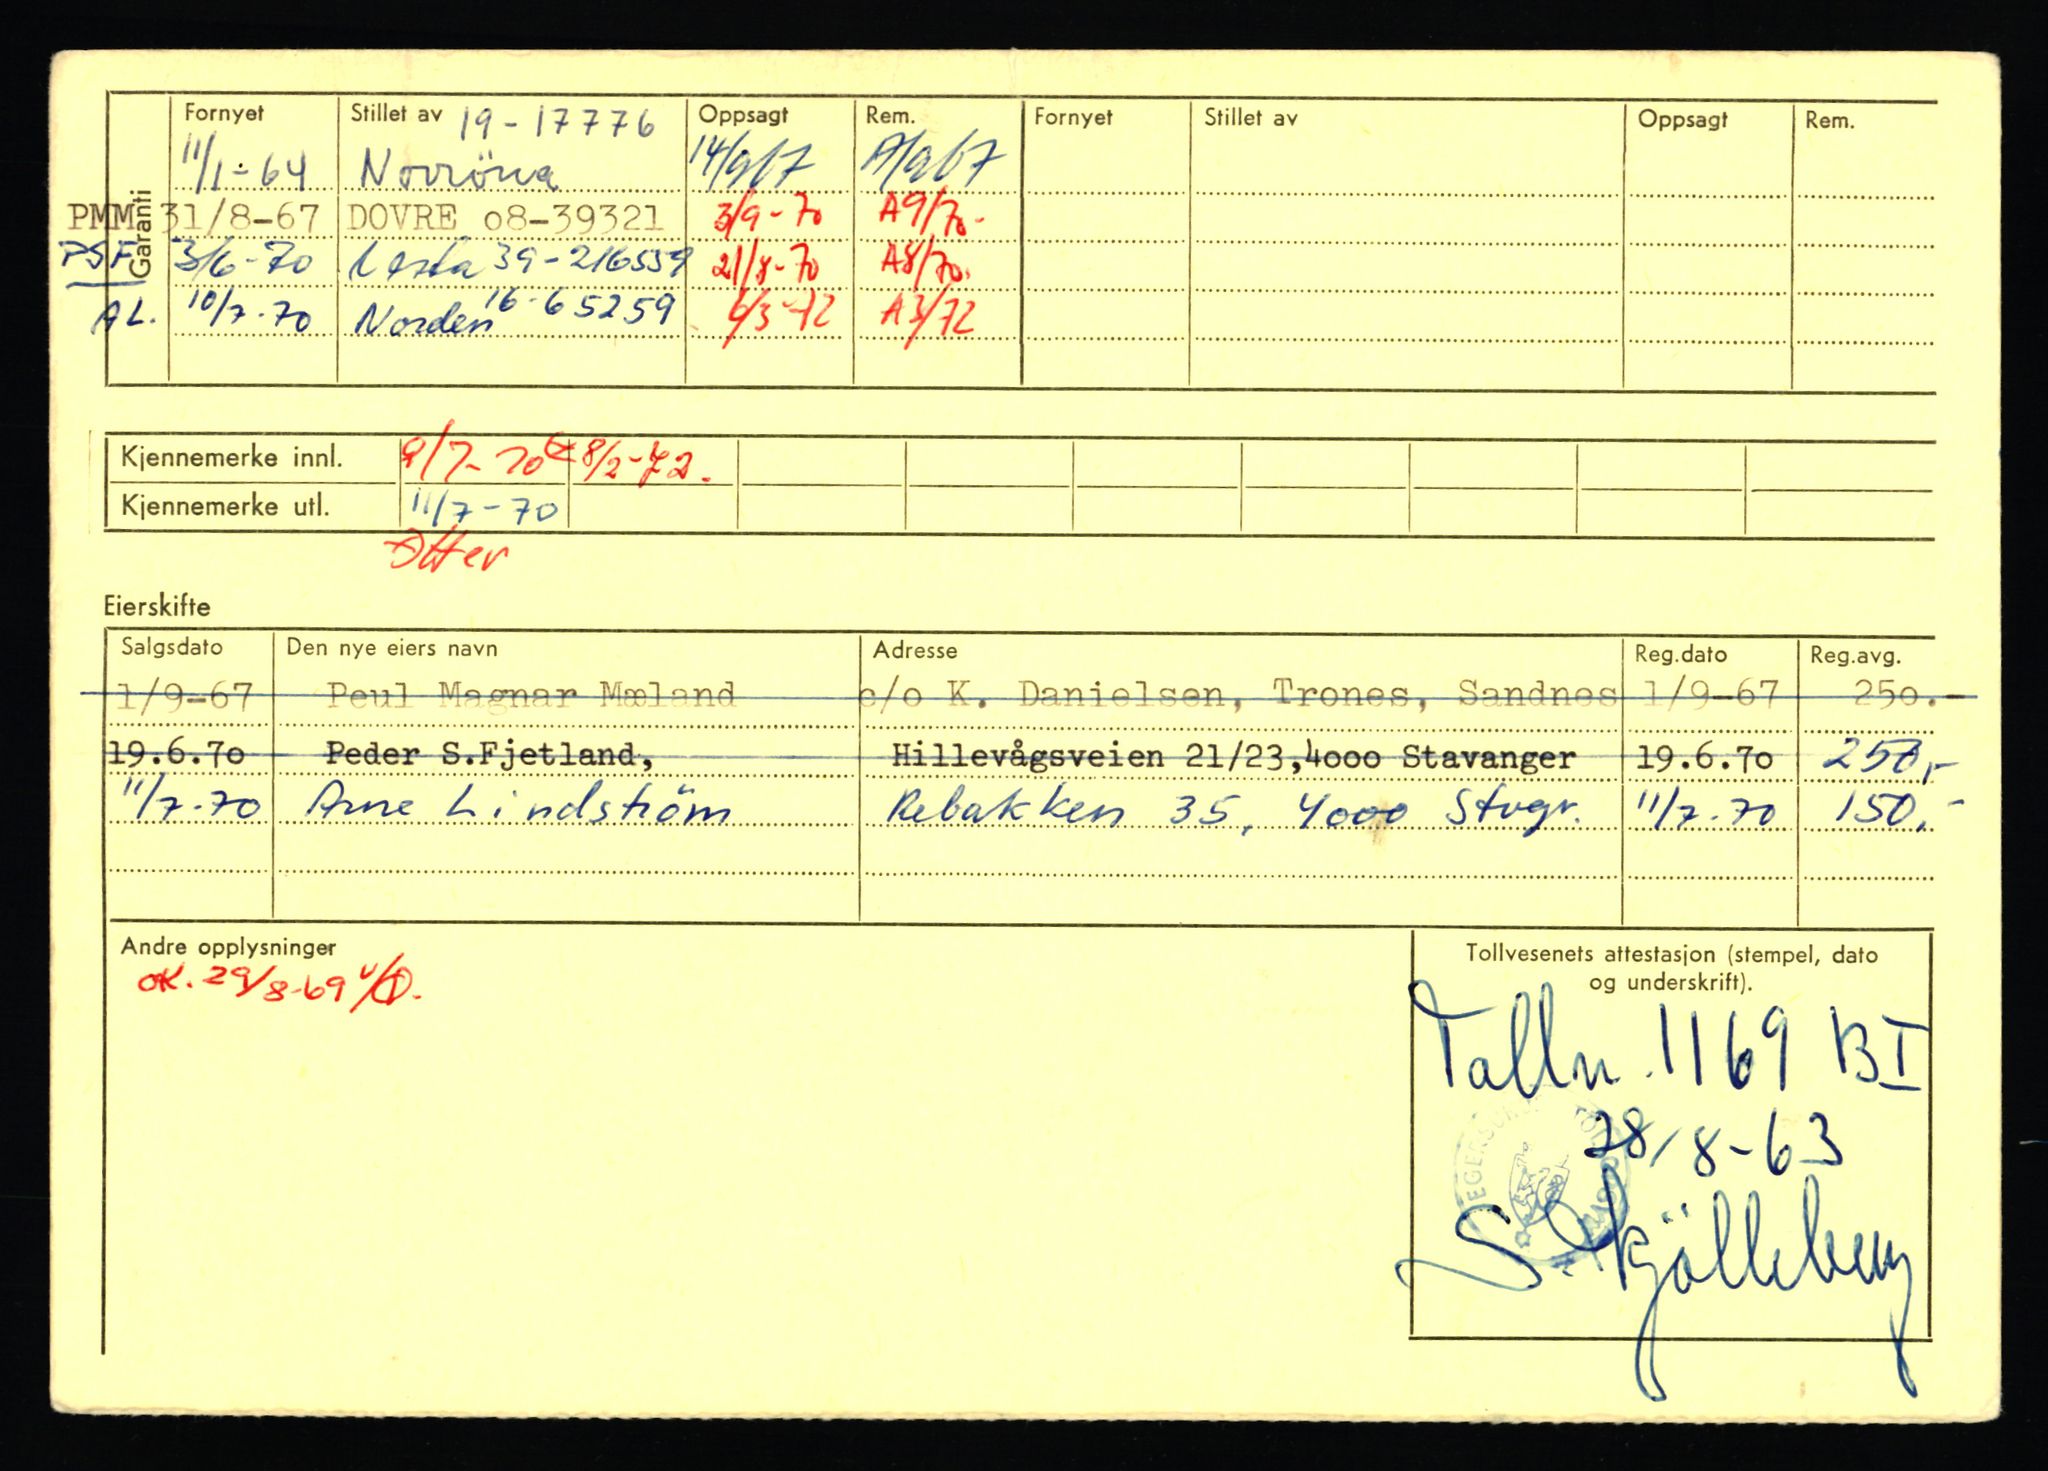 Fornyet Stillet av 19-17776 Oppsagt Rem. Fornyet Stillet av Oppsagt Rem.
11/1-64 Norröna 14/9 67 A/9 67
Garanti
PMM 31/8-67 DOVRE o8-39321 3/9-70 A9/70.
PSF 3/6-70 Vesta 39-216559 21/8-70 A8/70.
AL. 10/7-70 Norden 16-65259 6/3-72 A3/72
Kjennemerke innl. 9/7-70 8/2-72.
Kjennemerke utl. 11/7-70
Etter
Eierskifte
Salgsdato Den nye eiers navn Adresse Reg.dato Reg.avg.
1/9-67 Peul Magnar Mæland c/o K. Danielsen, Trones, Sandnes 1/9-67 25o.-
19.6.7o Peder S.Fjetland, Hillevågsveien 21/23,4ooo Stavanger 19.6.7o 250,-
11/7-70 Arne Lindström Rebakken 35, 4000 Stvgr. 11/7-70 150,-
Andre opplysninger
OK. 29/8-69
Tollvesenets attestasjon (stempel, dato
og underskrift).
Tolln. 1169 BI
28/8-63
S. Skjölleberg